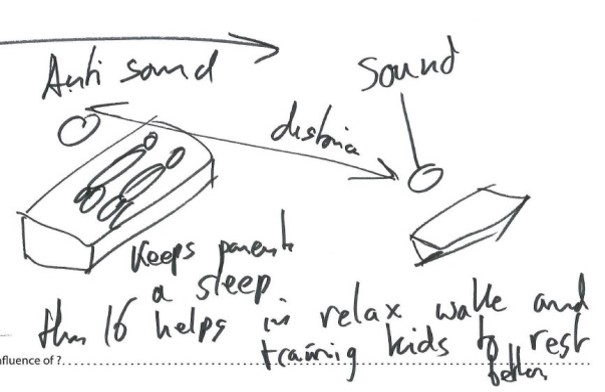 Anti sound
Sound
distance
Keeps parents
a sleep
this helps in relax walk and
training kids to rest
better
fluence of ?